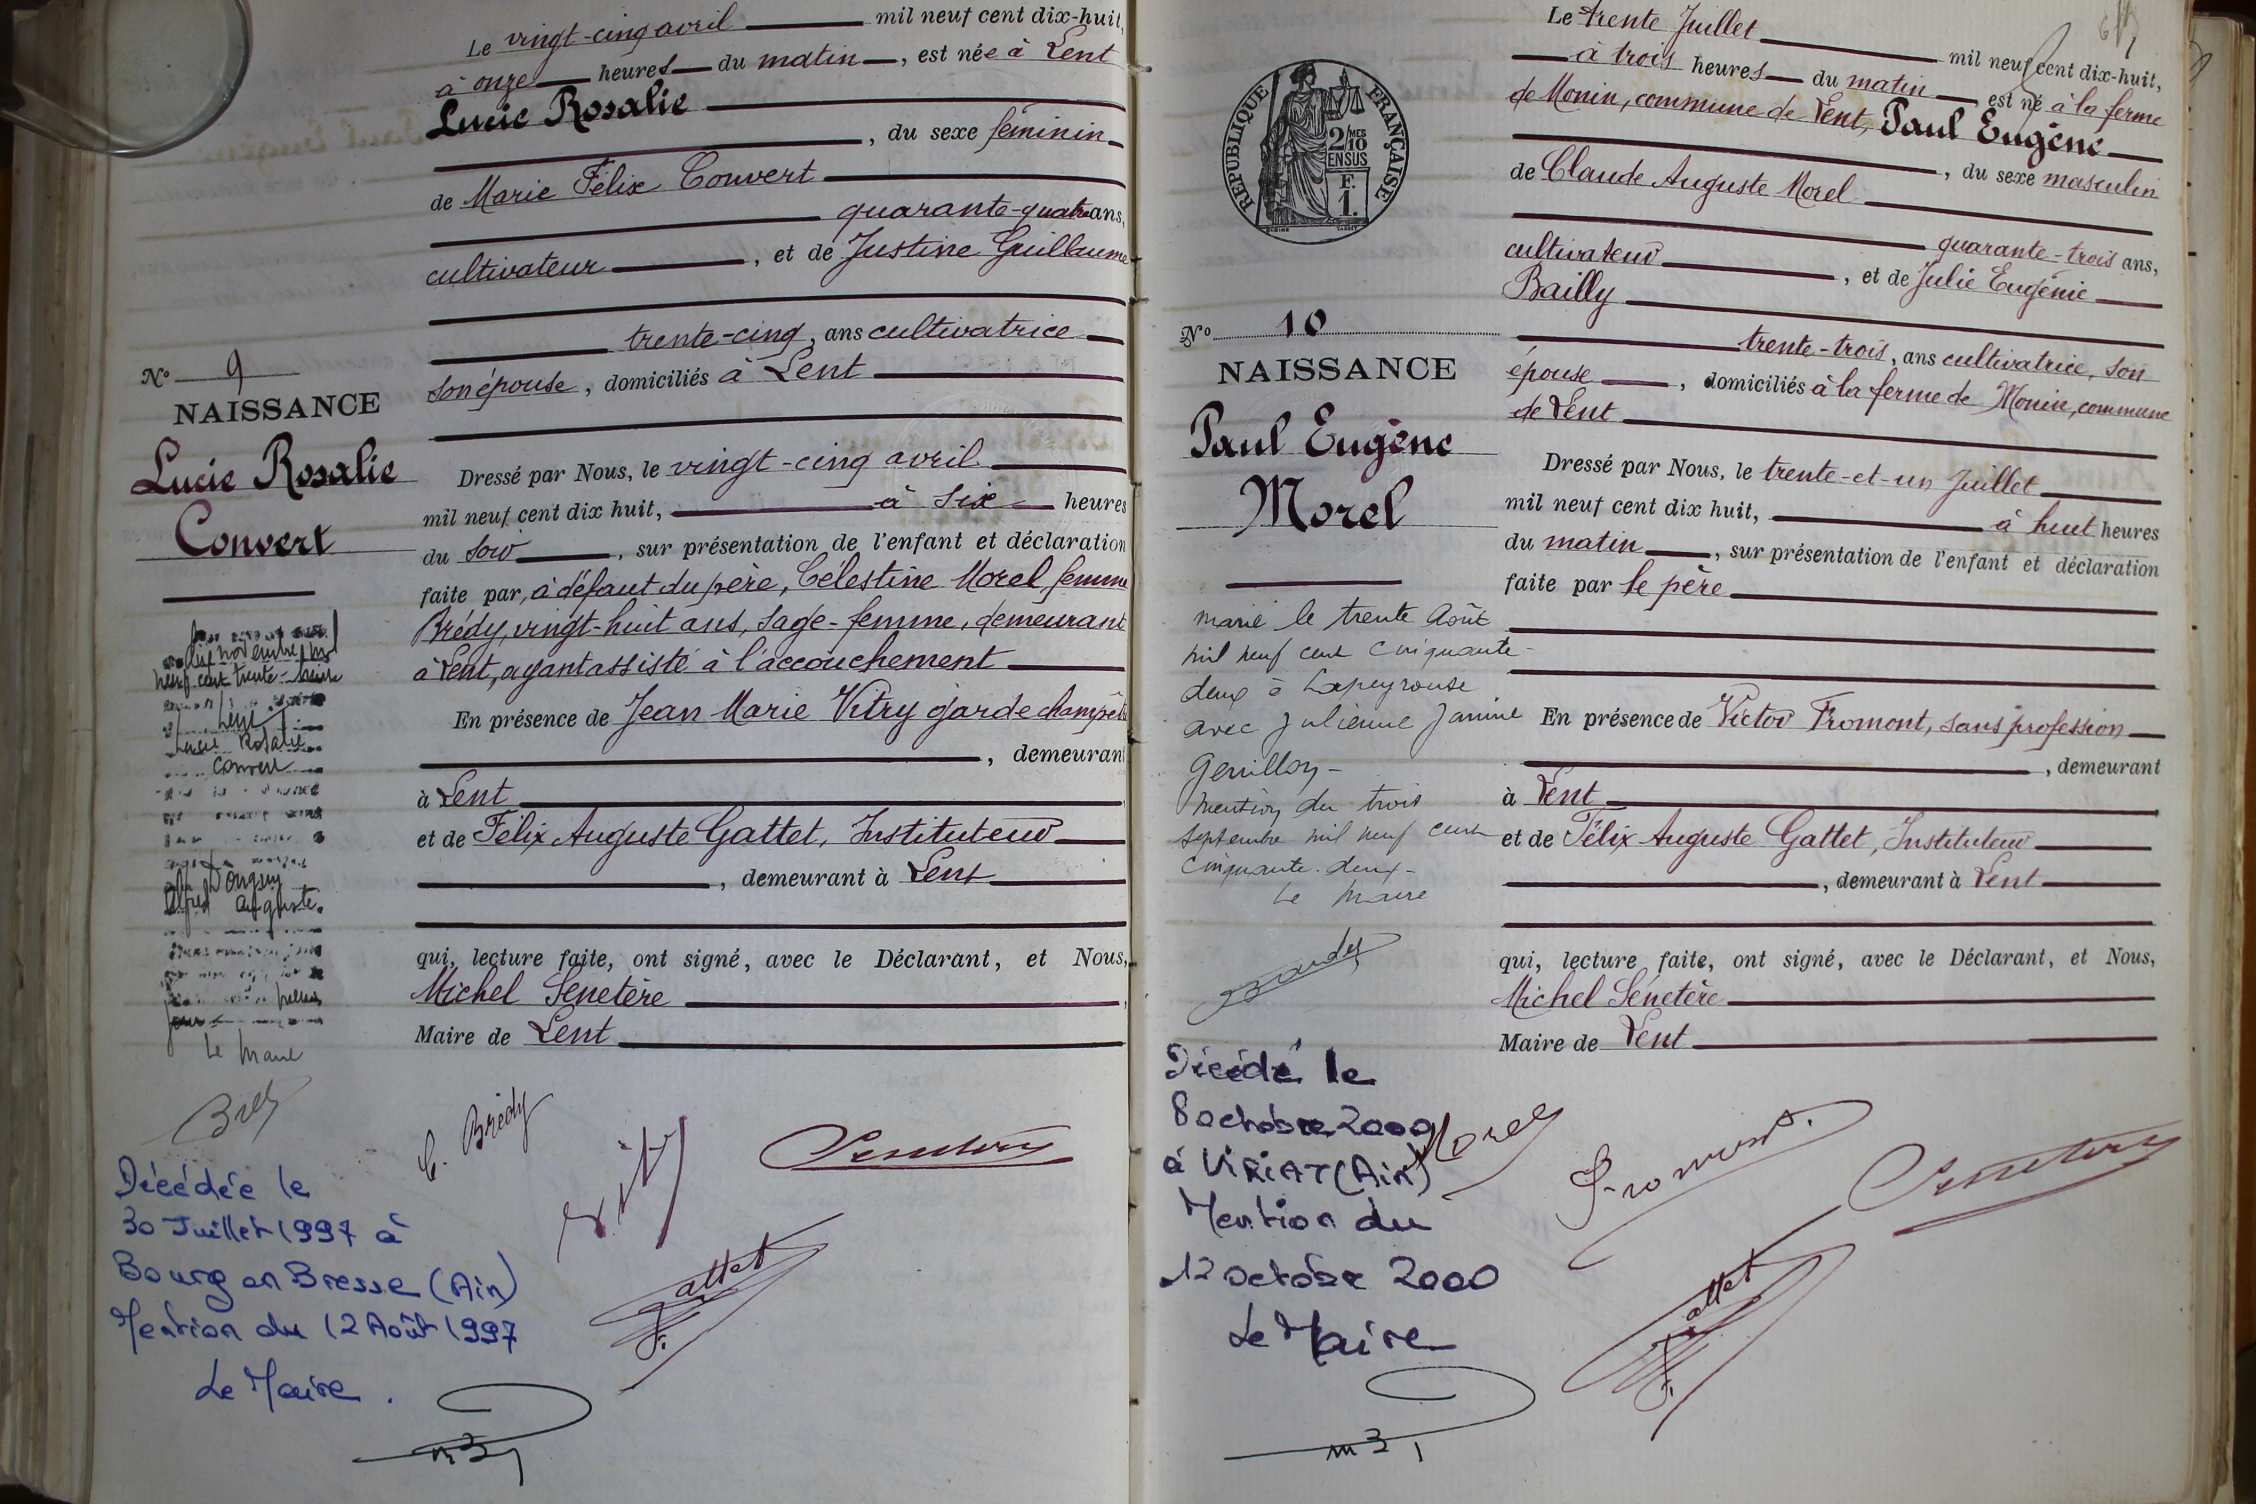 Le vingt-cinq avril mil neuf cent dix-huit,
à onze heures du matin, est née à Lent
Lucie Rosalie
, du sexe féminin
de Marie Félix Convert
quarante-quatre ans,
cultivateur, et de Justine Guillaume
trente-cinq, ans cultivatrice
son épouse, domiciliés à Lent
Dressé par Nous, le vingt-cinq avril
mil neuf cent dix huit, à six heures
du soir, sur présentation de l'enfant et déclaration
faite par, à défaut du père, Célestine Morel femme
Brédy, vingt-huit ans, sage-femme, demeurant
à Lent, ayant assisté à l'accouchement
En présence de Jean Marie Vitry garde champêtre
, demeurant
à Lent
et de Félix Auguste Gattet, Instituteur
, demeurant à Lent
qui, lecture faite, ont signé, avec le Déclarant, et Nous,
Michel Senetère
Maire de Lent
C. Brédy
Vitry
Senetère
F. Gattet
No 9
NAISSANCE
Lucie Rosalie
Convert
novembre mil
neuf cent trente
Lent
Lucie Rosalie
Convert
Alfred Auguste
Le Maire
Décédée le
30 Juillet 1997 à
Bourg en Bresse (Ain)
Mention du 12 Août 1997
Le Maire.
Le trente Juillet mil neuf cent dix-huit,
à trois heures du matin est né à la ferme
de Monin, commune de Lent, Paul Eugène
, du sexe masculin
de Claude Auguste Morel
quarante-trois ans,
cultivateur, et de Julie Eugénie
Bailly
trente-trois, ans cultivatrice, son
épouse, domiciliés à la ferme de Monin, commune
de Lent
Dressé par Nous, le trente-et-un Juillet
mil neuf cent dix huit, à huit heures
du matin, sur présentation de l'enfant et déclaration
faite par le père
En présence de Victor Fromont, sans profession
, demeurant
à Lent
et de Félix Auguste Gattet, Instituteur
, demeurant à Lent
qui, lecture faite, ont signé, avec le Déclarant, et Nous,
Michel Sénetère
Maire de Lent
Morel
Fromont.
Senetère
F. Gattet
RÉPUBLIQUE FRANÇAISE
2/10
EN SUS
F.
1.
No 10
NAISSANCE
Paul Eugène
Morel
marié le trente Août
mil neuf cent cinquante-
deux à Lapeyrouse
avec Julienne Janine
mention du trois
septembre mil neuf cent
cinquante-deux-
Le Maire
Décédé le
8 octobre 2000
à VIRIAT (Ain)
Mention du
12 octobre 2000
Le Maire